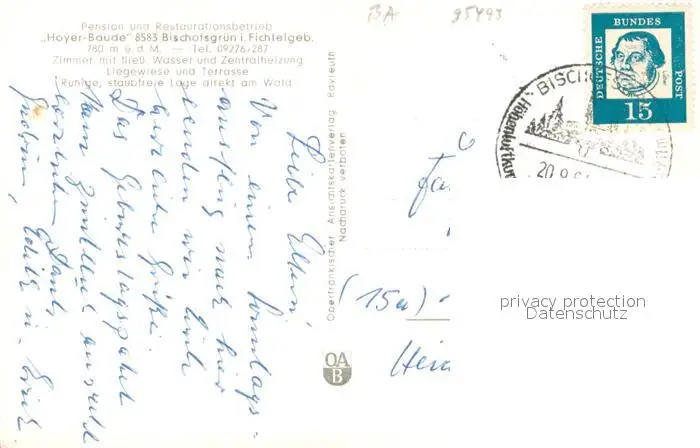 BA 95493
Pension und Restaurationsbetrieb
„Hoyer-Baude" 8583 Bischofsgrün i. Fichtelgeb.
780 m ü. d. M. — Tel. 09276/287
Zimmer mit fließ. Wasser und Zentralheizung
Liegewiese und Terrasse
Ruhige, staubfreie Lage direkt am Wald
Liebe Eltern!
Von einem Sonntags-
ausflug nach hier
senden wir Euch
herzliche Grüße.
Das Geburtstagspaket
kam
herzlichen Dank,
Edith u. Erich
Oberfränkischer Ansichtskartenverlag Bayreuth
Nachdruck verboten
OA
B
DEUTSCHE
BUNDES
POST
15
BISCH
Höhenluftkur
20.9.6
Fa
(15a)
Heid
privacy protection
Datenschutz